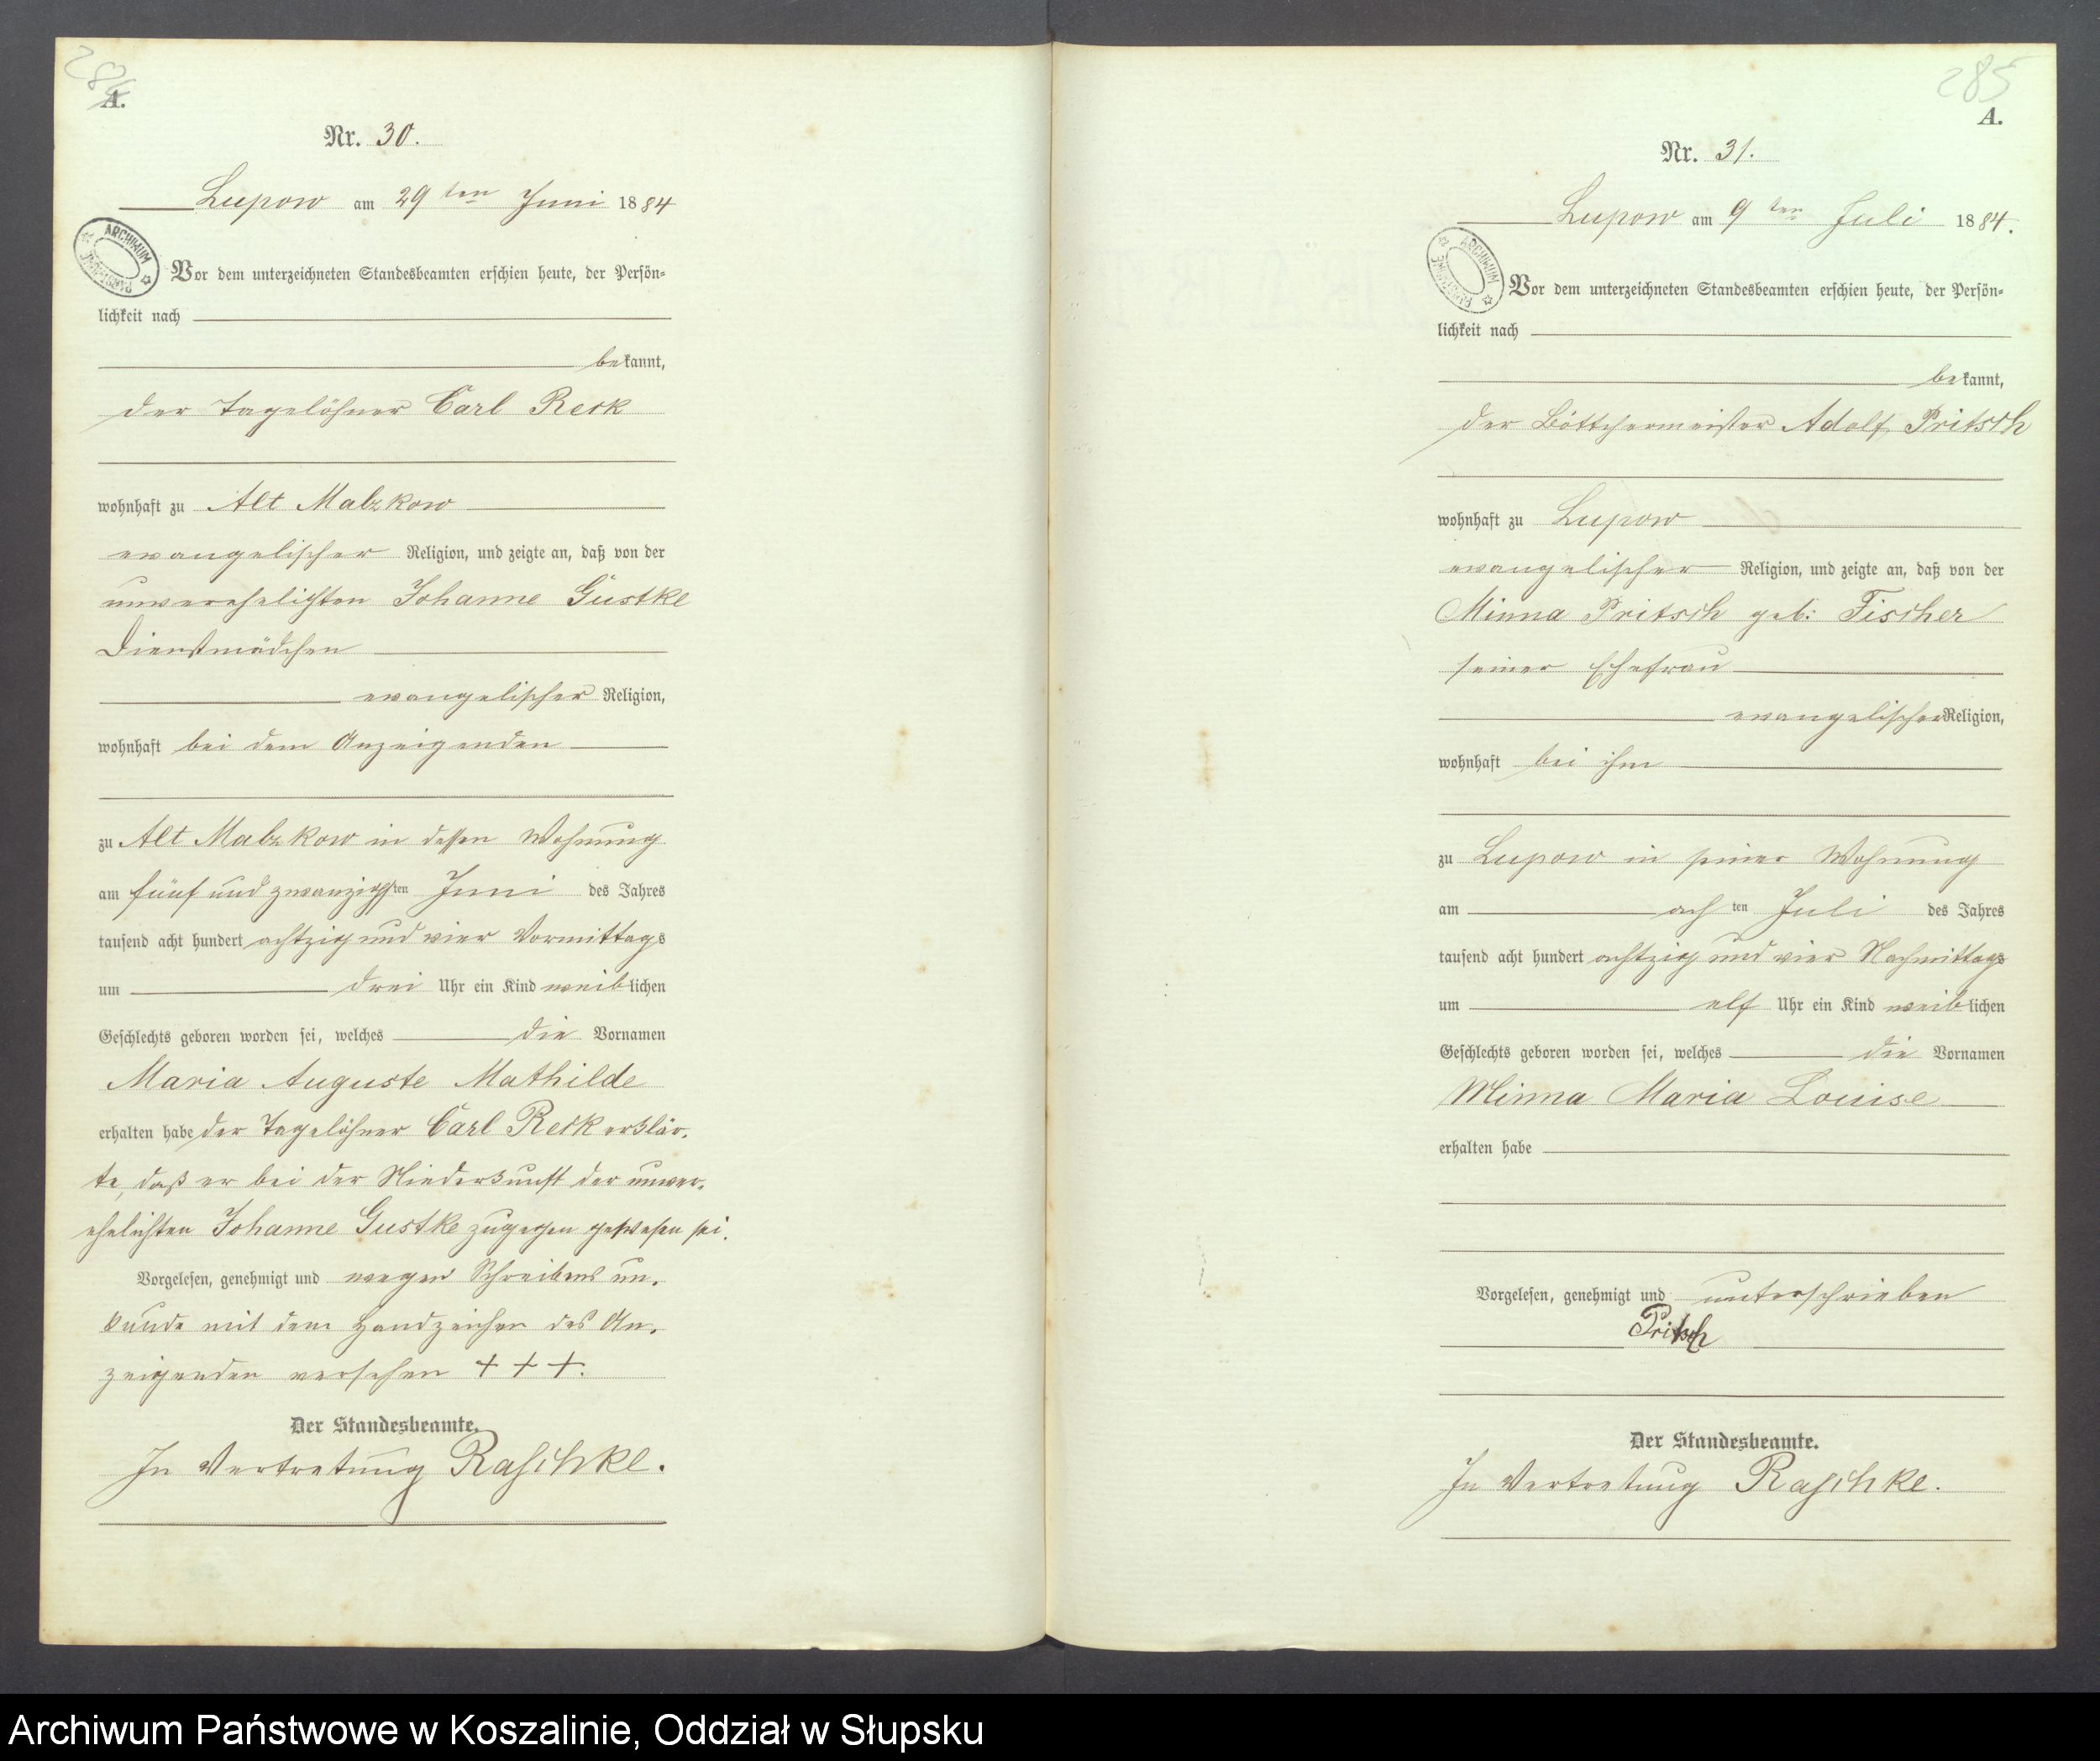 284
A.
Nr. 30.
Lupow am 29 ten Juni 1884
ARCHIWUM PAŃSTWOWE
Vor dem unterzeichneten Standesbeamten erschien heute, der Persön-
lichkeit nach
bekannt,
der Tagelöhner Carl Reck
wohnhaft zu Alt Malzkow
evangelischer Religion, und zeigte an, daß von der
unverehelichten Johanne Gustke
Dienstmädchen
evangelischer Religion,
wohnhaft bei dem Anzeigenden
zu Alt Malzkow in dessen Wohnung
am fünf und zwanzigsten Juni des Jahres
tausend acht hundert achtzig und vier Vormittags
um drei Uhr ein Kind weiblichen
Geschlechts geboren worden sei, welches die Vornamen
Maria Auguste Mathilde
erhalten habe der Tagelöhner Carl Reck erklär-
te, daß er bei der Niederkunft der unver-
ehelichten Johanne Gustke zugegen gewesen sei.
Vorgelesen, genehmigt und wegen Schreibens un-
kunde mit dem Handzeichen des An-
zeigenden versehen + + +.
Der Standesbeamte.
In Vertretung Raschke.
285
A.
Nr. 31.
Lupow am 9 ten Juli 1884.
ARCHIWUM PAŃSTWOWE
Vor dem unterzeichneten Standesbeamten erschien heute, der Persön-
lichkeit nach
bekannt,
der Böttchermeister Adolf Pritsch
wohnhaft zu Lupow
evangelischer Religion, und zeigte an, daß von der
Minna Pritsch geb: Fischer
seiner Ehefrau
evangelischer Religion,
wohnhaft bei ihm
zu Lupow in seiner Wohnung
am achten Juli des Jahres
tausend acht hundert achtzig und vier Nachmittags
um elf Uhr ein Kind weiblichen
Geschlechts geboren worden sei, welches die Vornamen
Minna Maria Louise
erhalten habe
Vorgelesen, genehmigt und unterschrieben
Pritsch
Der Standesbeamte.
In Vertretung Raschke.
Archiwum Państwowe w Koszalinie, Oddział w Słupsku